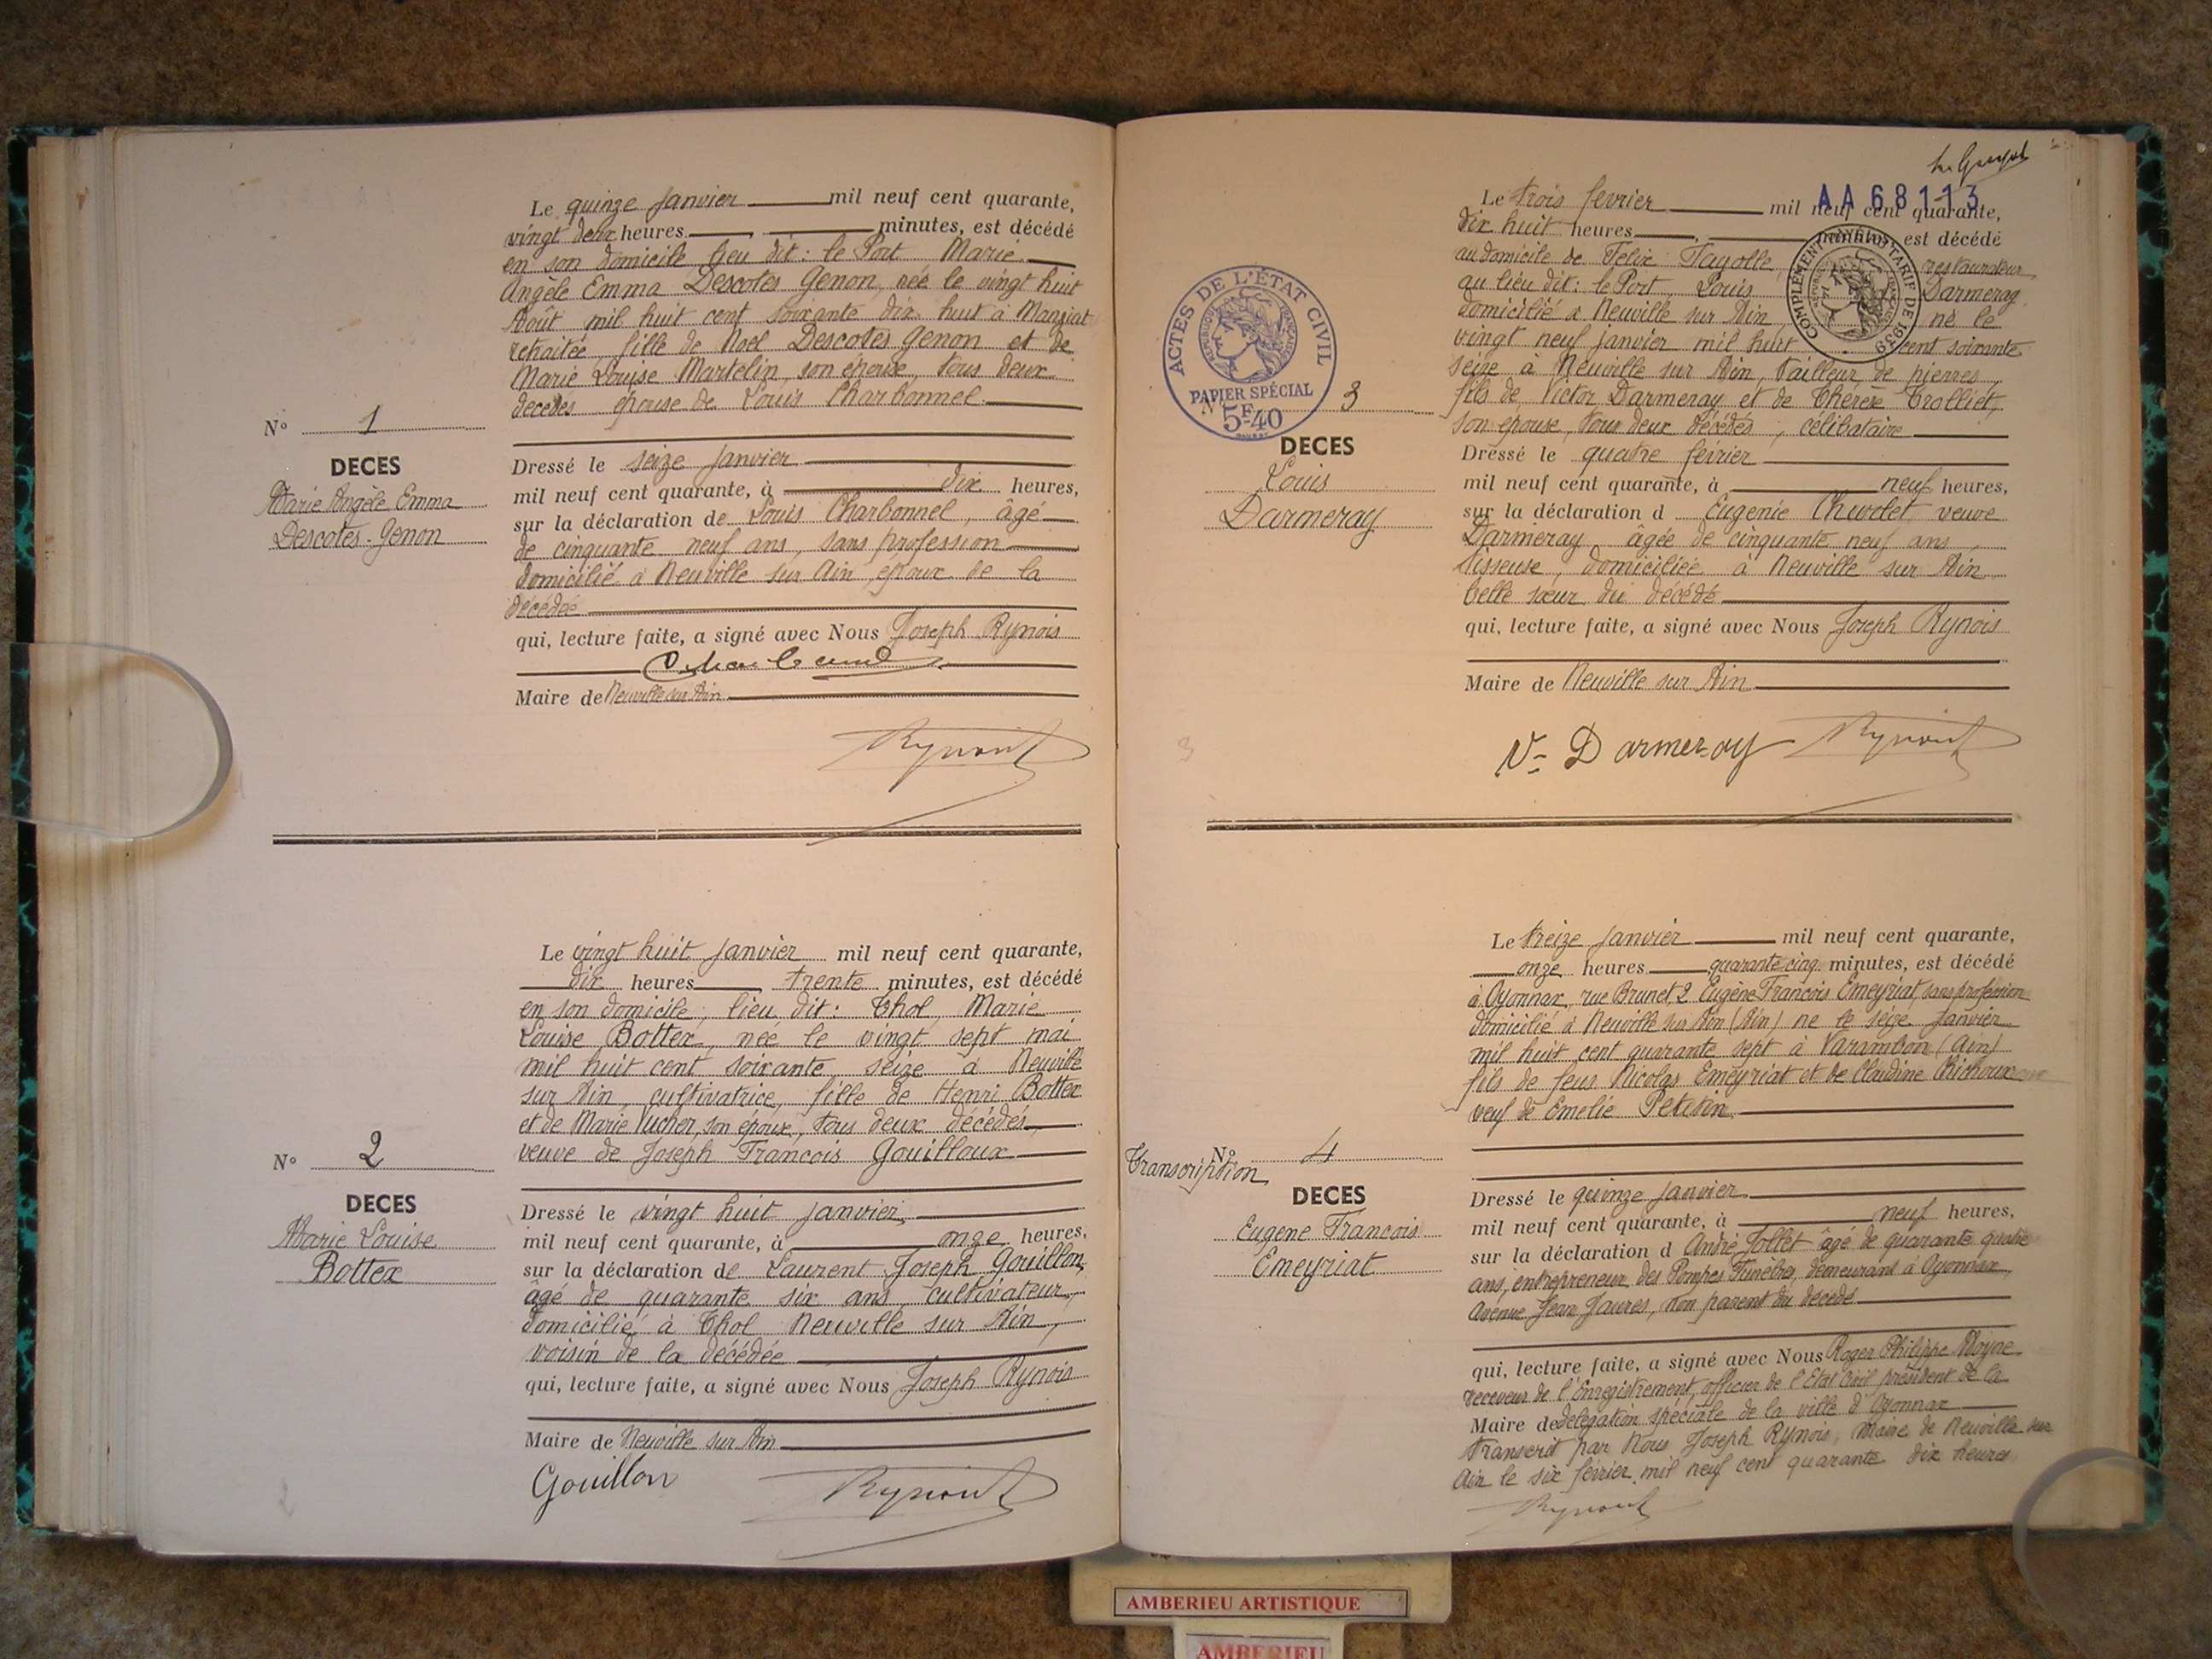 Le quinze Janvier mil neuf cent quarante,
vingt deux heures, minutes, est décédé
en son domicile lieu dit : le Port Marie
Angèle Emma Descotes Genon, née le vingt huit
Août mil huit cent soixante dix huit à Manziat
retraitée, fille de Noël Descotes Genon et de
Marie Louise Martelin, son épouse, tous deux
décédés épouse de Louis Charbonnel.
N° 1
DECES
Marie Angèle Emma
Descotes-Genon
Dressé le seize Janvier
mil neuf cent quarante, à dix heures,
sur la déclaration de Louis Charbonnel, âgé
de cinquante neuf ans, sans profession
domicilié à Neuville sur Ain époux de la
décédée
qui, lecture faite, a signé avec Nous Joseph Rynois
Maire de Neuville sur Ain
Le vingt huit Janvier mil neuf cent quarante,
dix heures, trente minutes, est décédé
en son domicile, lieu dit : Thol, Marie
Louise Bottex, née le vingt sept mai
mil huit cent soixante seize à Neuville
sur Ain, cultivatrice, fille de Henri Bottex
et de Marie Vucher, son épouse, tous deux décédés,
veuve de Joseph François Gouilloux
N° 2
DECES
Marie Louise
Bottex
Dressé le vingt huit Janvier
mil neuf cent quarante, à onze heures,
sur la déclaration de Laurent Joseph Gouillon,
âgé de quarante six ans, cultivateur,
domicilié à Thol Neuville sur Ain,
voisin de la décédée
qui, lecture faite, a signé avec Nous Joseph Rynois
Maire de Neuville sur Ain
Gouillon
AA 68113
Le trois février mil neuf cent quarante,
dix huit heures, minutes, est décédé
au domicile de Félix Tayolle, restaurateur
au lieu dit : le Port, Louis Darmeray
domicilié à Neuville sur Ain, né le
vingt neuf janvier mil huit cent soixante
seize à Neuville sur Ain, tailleur de pierres,
fils de Victor Darmeray et de Thérèse Trolliet,
son épouse, tous deux décédés, célibataire
COMPLÉMENT AU TARIF DE 1939
ACTES DE L'ÉTAT CIVIL
RÉPUBLIQUE FRANÇAISE
PAPIER SPÉCIAL
5F40
N° 3
DECES
Louis
Darmeray
Dressé le quatre février
mil neuf cent quarante, à neuf heures,
sur la déclaration d Eugénie Chevolet veuve
Darmeray âgée de cinquante neuf ans,
tisseuse, domiciliée à Neuville sur Ain
belle sœur du décédé
qui, lecture faite, a signé avec Nous Joseph Rynois
Maire de Neuville sur Ain
Ve Darmeray
Le treize Janvier mil neuf cent quarante,
onze heures quarante cinq minutes, est décédé
à Oyonnax, rue Brunet, 2 Eugène François Emeyriat, sans profession
domicilié à Neuville sur Ain (Ain) né le seize Janvier
mil huit cent quarante sept à Varambon (Ain)
fils de feus Nicolas Emeyriat et de Claudine Chichoux
veuf de Emelie Petitin.
Transcription
N° 4
DECES
Eugène François
Emeyriat
Dressé le quinze Janvier
mil neuf cent quarante, à neuf heures,
sur la déclaration d André Jollet âgé de quarante quatre
ans, entrepreneur des Pompes Funèbres, demeurant à Oyonnax,
avenue Jean Jaurès, non parent du décédé
qui, lecture faite, a signé avec Nous Roger Philippe Moyne
receveur de l'Enregistrement, officier de l'Etat Civil président de la
Maire de délégation spéciale de la ville d'Oyonnax
Transcrit par Nous Joseph Rynois, Maire de Neuville sur
Ain le six février mil neuf cent quarante dix heures
AMBERIEU ARTISTIQUE
AMBERIEU